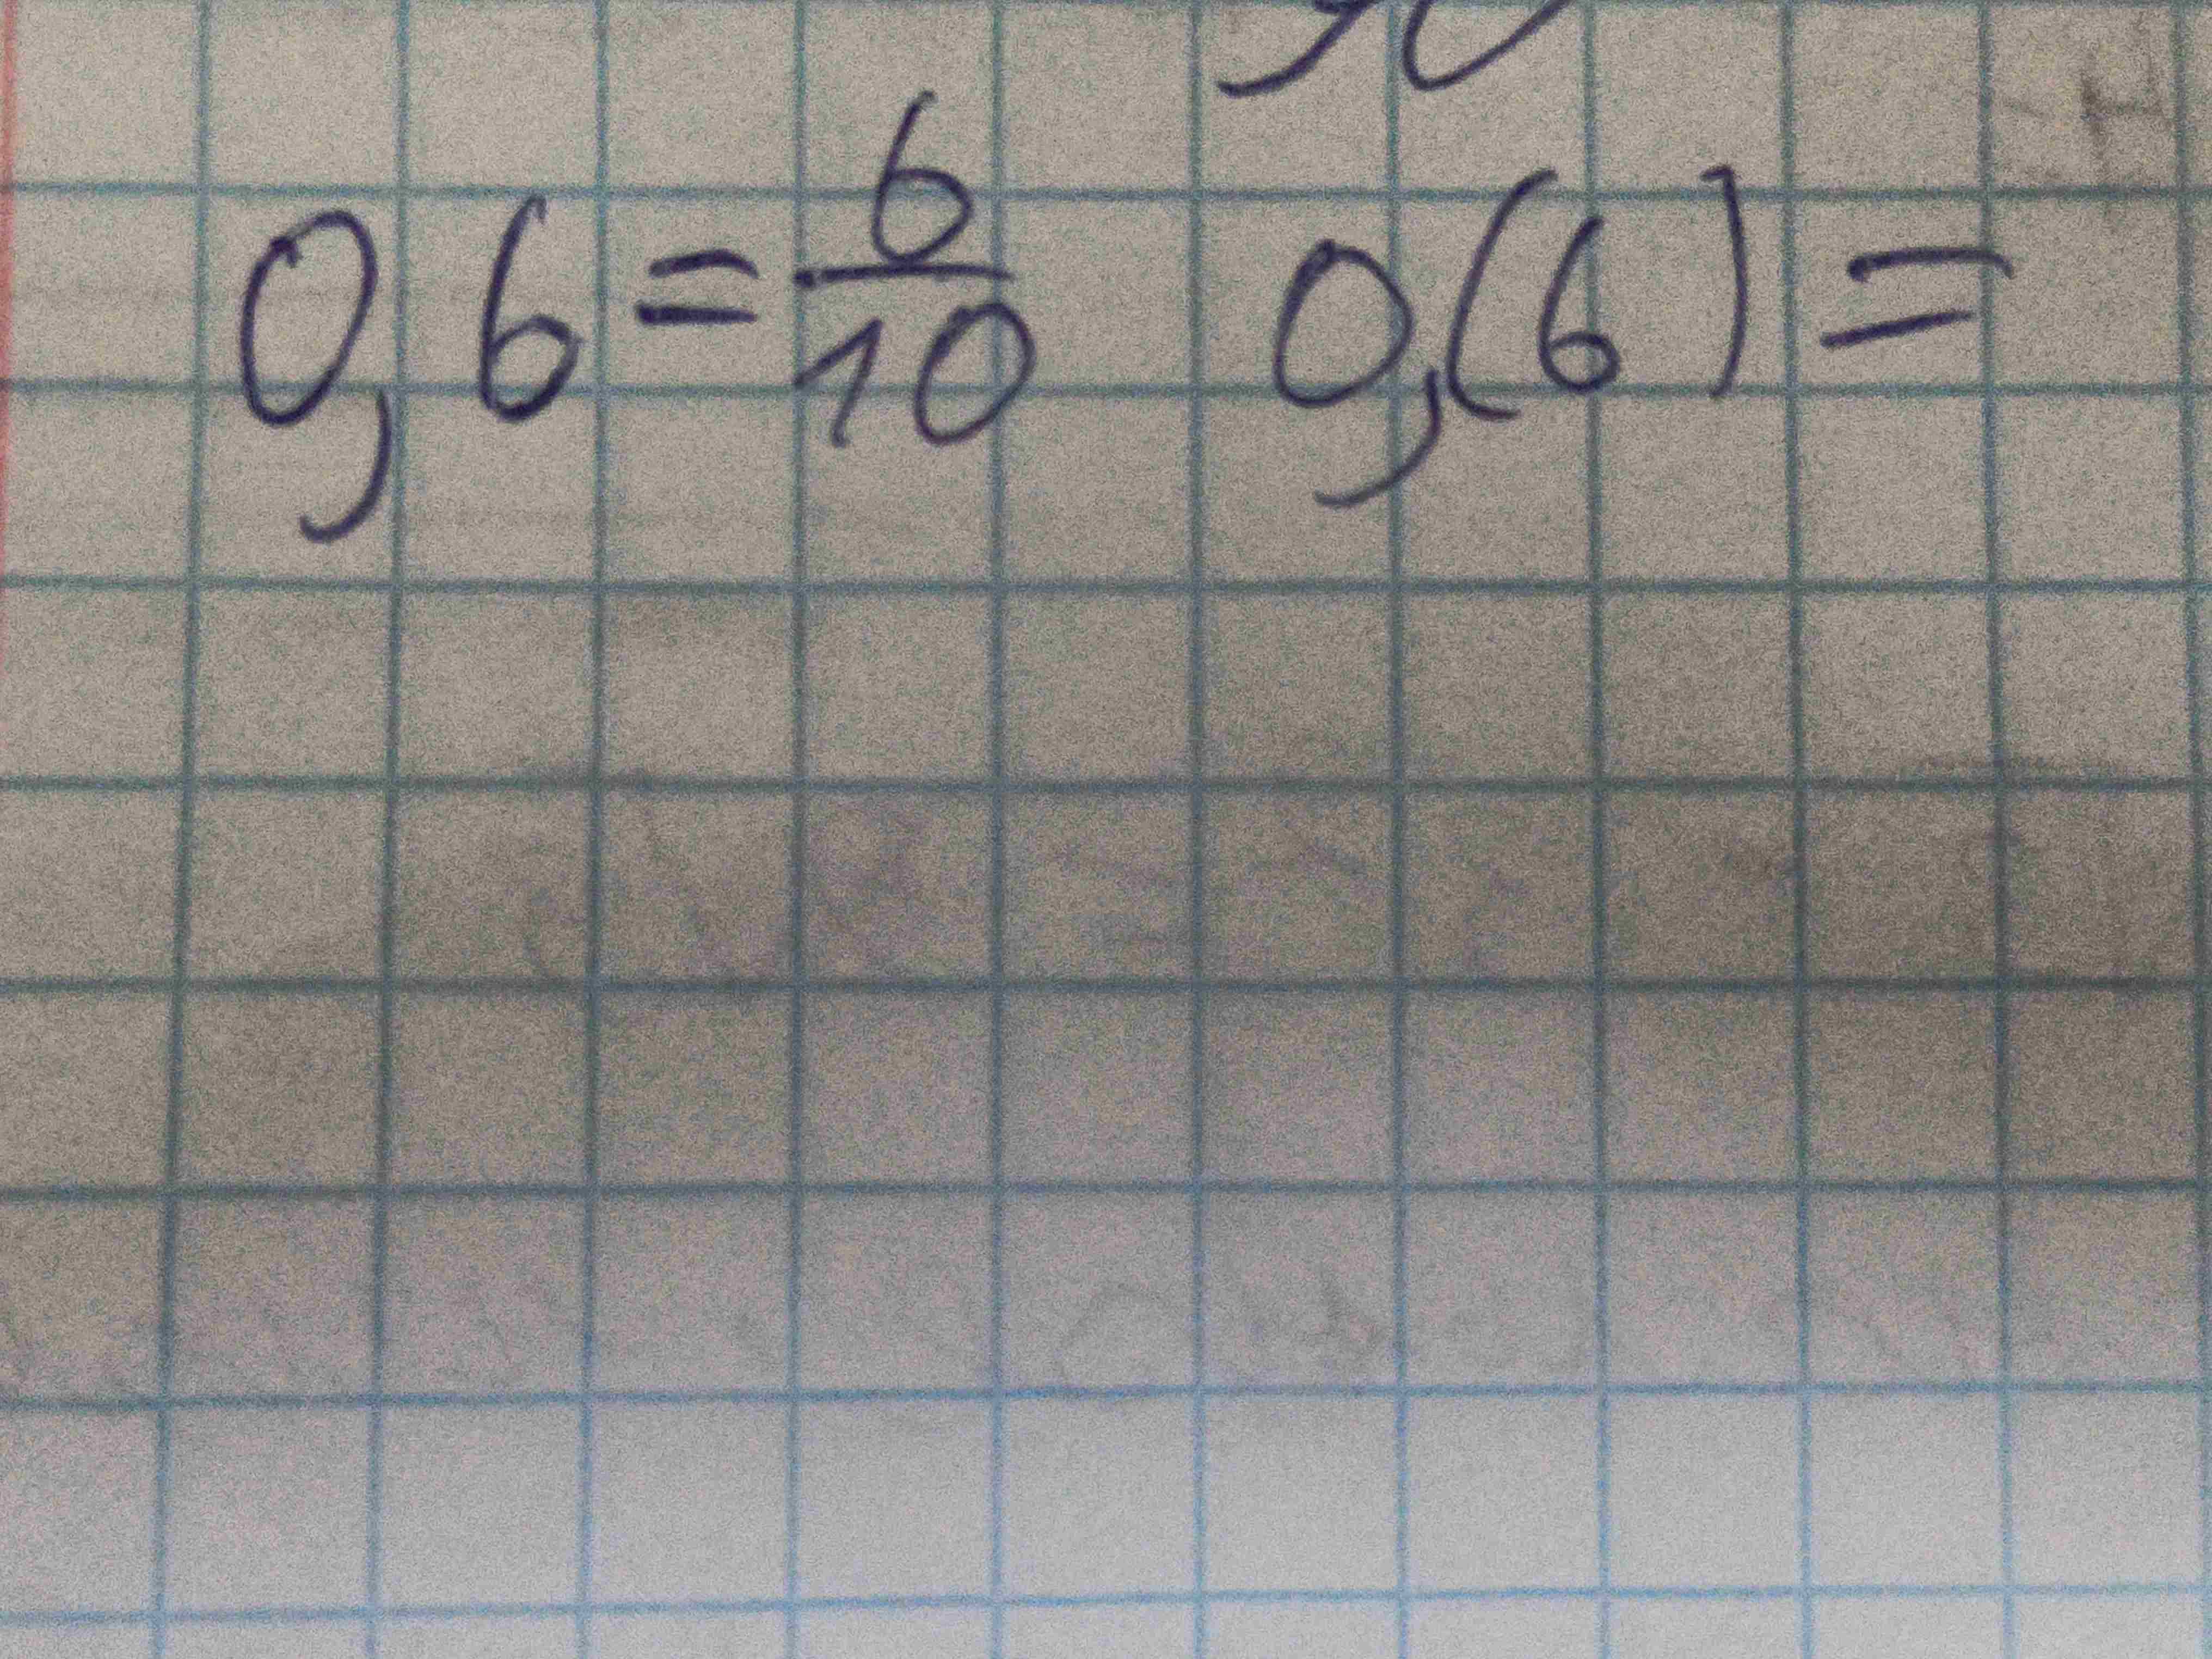 0,6 = 6/10 0,(6) =